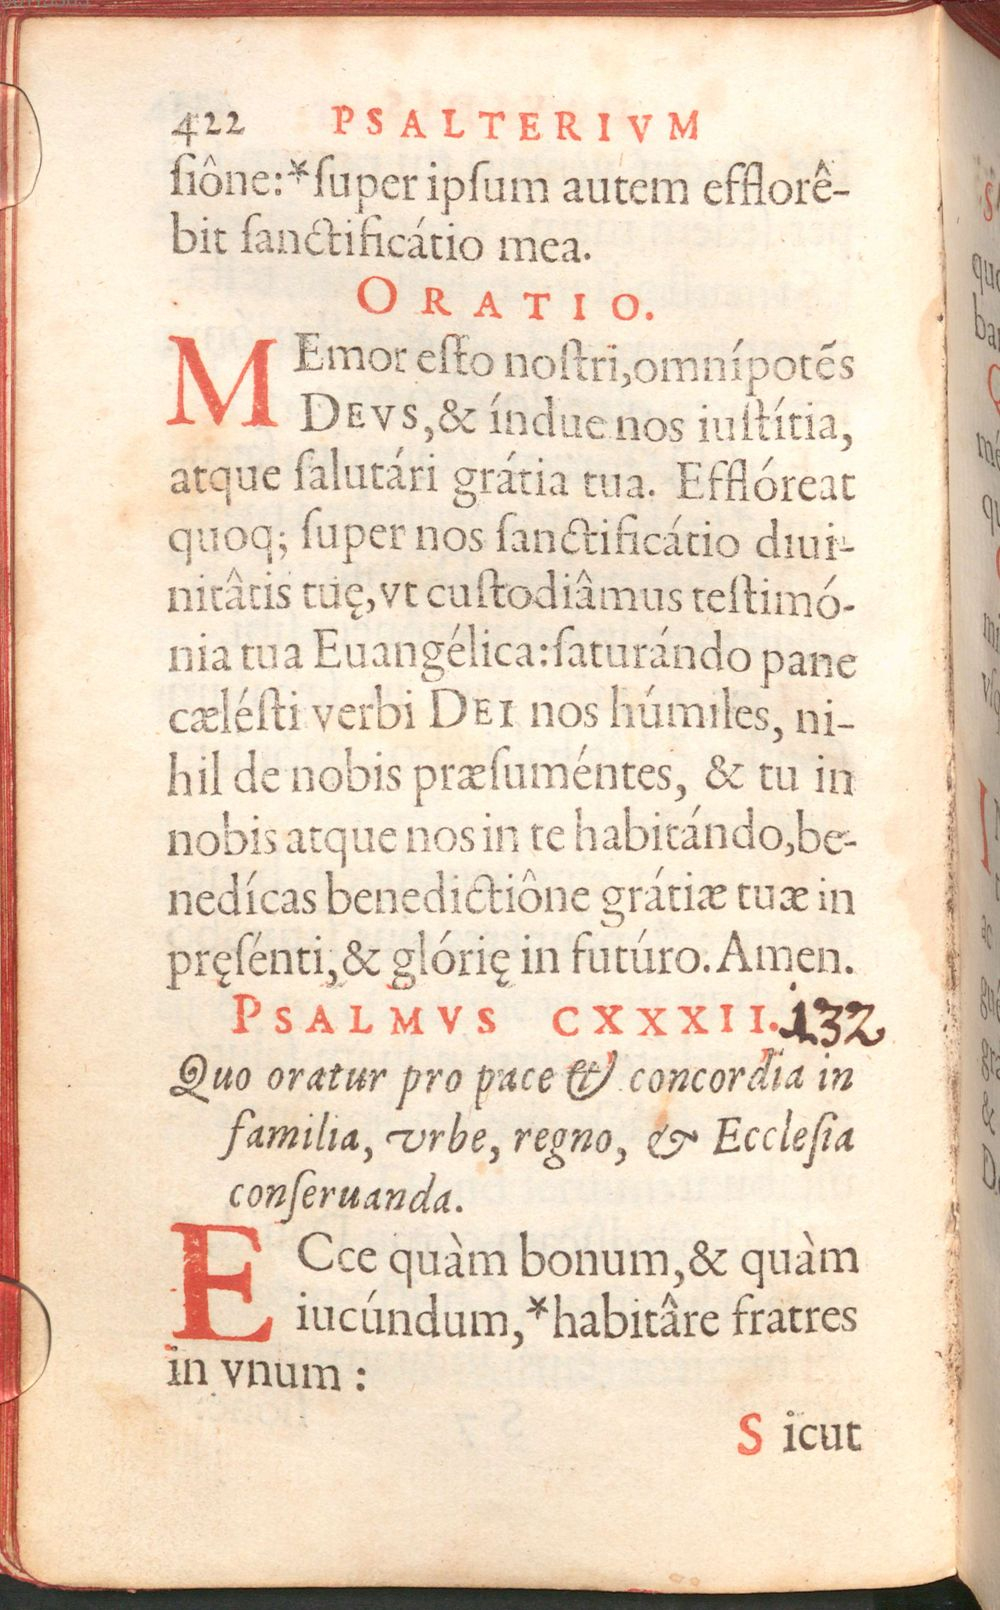 422 PSALTERIVM
ſiône:*ſuper ipſum autem efflorê-
bit ſanctificátio mea.
ORATIO.
MEmor eſto noſtri,omnípotẽs
DEVS,& índue nos iuſtítia,
atque ſalutári grátia tua. Efflóreat
quoq; ſuper nos ſanctificátio diui-
nitâtis tuę,vt cuſtodiâmus teſtimó-
nia tua Euangélica:ſaturándo pane
cæléſti verbi DEI nos húmiles, ni-
hil de nobis præſuméntes, & tu in
nobis atque nos in te habitándo,be-
nedícas benedictiône grátiæ tuæ in
pręſénti,& glórię in futúro. Amen.
PSALMVS CXXXII. 132
Quo oratur pro pace & concordia in
familia, vrbe, regno, & Eccleſia
conſeruanda.
ECce quàm bonum,& quàm
iucúndum,*habitâre fratres
in vnum :
Sicut